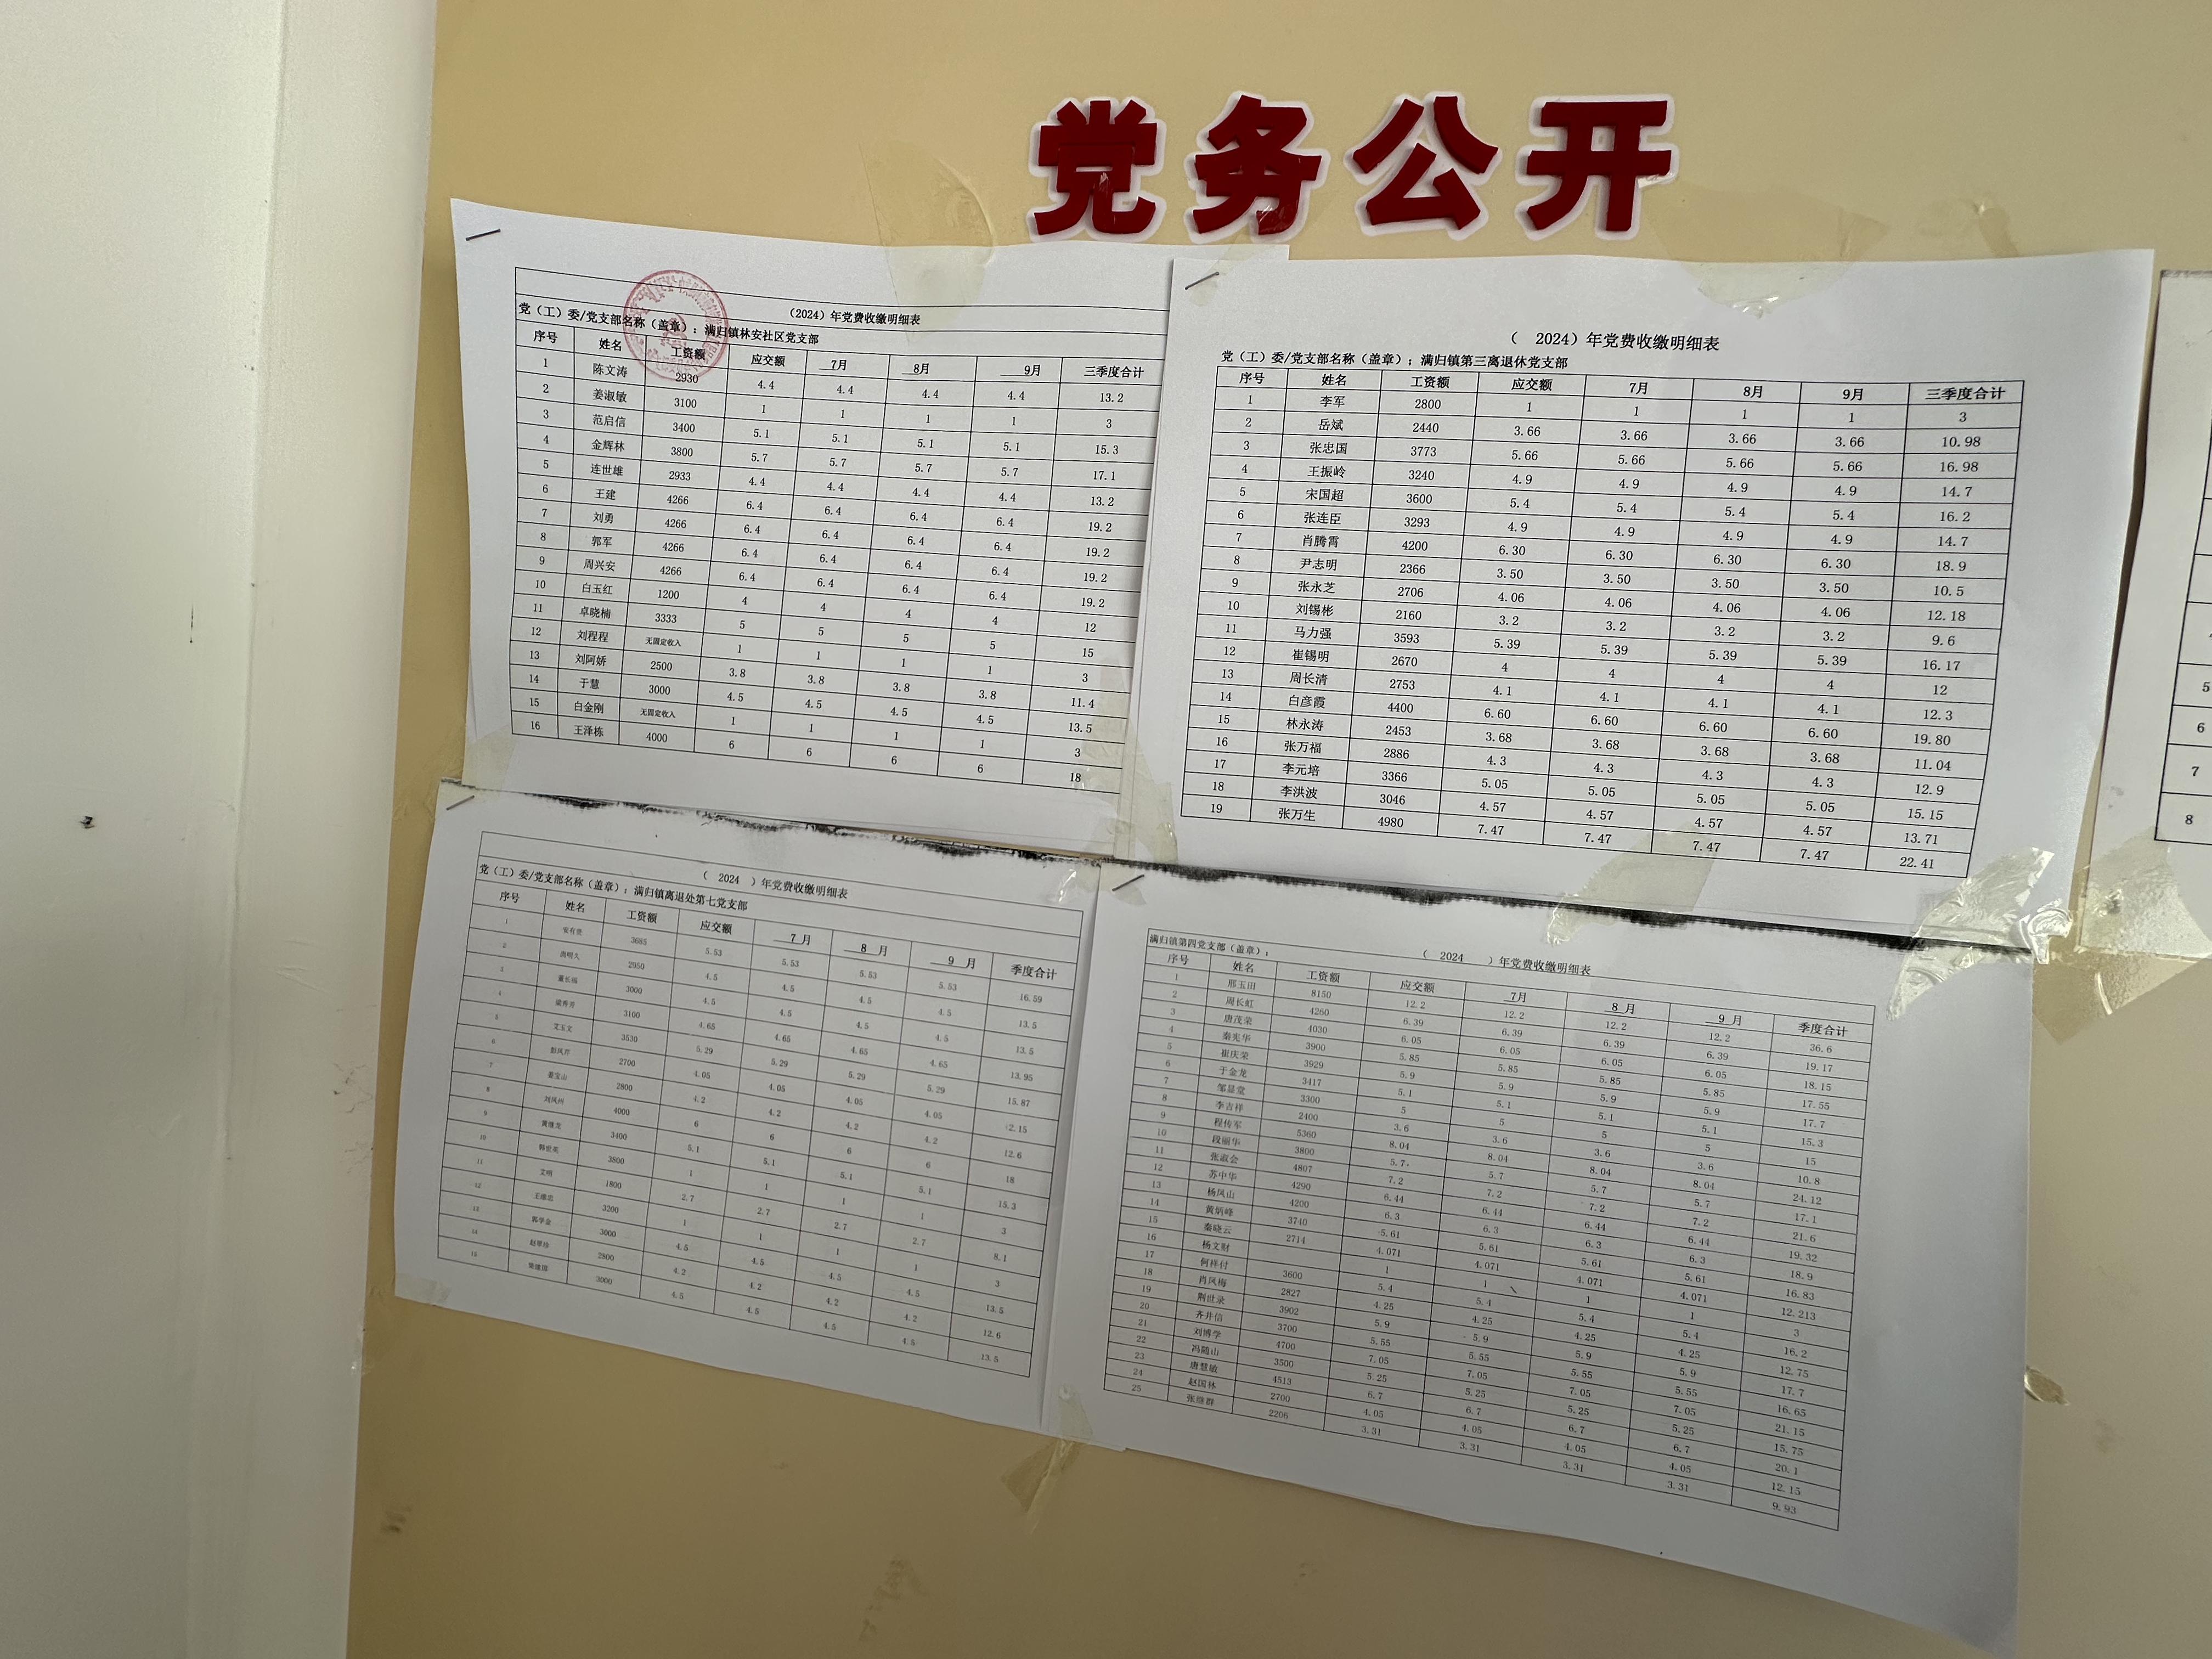 党务公开
（2024）年党费收缴明细表
党（工）委/党支部名称（盖章）：满归镇林安社区党支部
序号 姓名 工资额 应交额 7月 8月 9月 三季度合计
1 陈文涛 2930 4.4 4.4 4.4 4.4 13.2
2 姜淑敏 3100 1 1 1 1 3
3 范启信 3400 5.1 5.1 5.1 5.1 15.3
4 金辉林 3800 5.7 5.7 5.7 5.7 17.1
5 连世雄 2933 4.4 4.4 4.4 4.4 13.2
6 王建 4266 6.4 6.4 6.4 6.4 19.2
7 刘勇 4266 6.4 6.4 6.4 6.4 19.2
8 郭军 4266 6.4 6.4 6.4 6.4 19.2
9 周兴安 4266 6.4 6.4 6.4 6.4 19.2
10 白玉红 1200 4 4 4 4 12
11 卓晓楠 3333 5 5 5 5 15
12 刘程程 无固定收入 1 1 1 1 3
13 刘阿娇 2500 3.8 3.8 3.8 3.8 11.4
14 于慧 3000 4.5 4.5 4.5 4.5 13.5
15 白金刚 无固定收入 1 1 1 1 3
16 王泽栋 4000 6 6 6 6 18
（ 2024）年党费收缴明细表
党（工）委/党支部名称（盖章）；满归镇第三离退休党支部
序号 姓名 工资额 应交额 7月 8月 9月 三季度合计
1 李军 2800 1 1 1 1 3
2 岳斌 2440 3.66 3.66 3.66 3.66 10.98
3 张忠国 3773 5.66 5.66 5.66 5.66 16.98
4 王振岭 3240 4.9 4.9 4.9 4.9 14.7
5 宋国超 3600 5.4 5.4 5.4 5.4 16.2
6 张连臣 3293 4.9 4.9 4.9 4.9 14.7
7 肖腾霄 4200 6.30 6.30 6.30 6.30 18.9
8 尹志明 2366 3.50 3.50 3.50 3.50 10.5
9 张永芝 2706 4.06 4.06 4.06 4.06 12.18
10 刘锡彬 2160 3.2 3.2 3.2 3.2 9.6
11 马力强 3593 5.39 5.39 5.39 5.39 16.17
12 崔锡明 2670 4 4 4 4 12
13 周长清 2753 4.1 4.1 4.1 4.1 12.3
14 白彦霞 4400 6.60 6.60 6.60 6.60 19.80
15 林永涛 2453 3.68 3.68 3.68 3.68 11.04
16 张万福 2886 4.3 4.3 4.3 4.3 12.9
17 李元培 3366 5.05 5.05 5.05 5.05 15.15
18 李洪波 3046 4.57 4.57 4.57 4.57 13.71
19 张万生 4980 7.47 7.47 7.47 7.47 22.41
5
6
7
8
（ 2024 ）年党费收缴明细表
党（工）委/党支部名称（盖章）：满归镇离退处第七党支部
序号 姓名 工资额 应交额 7 月 8 月 9 月 季度合计
1 3685 5.53 5.53 5.53 5.53 16.59
2 2950 4.5 4.5 4.5 4.5 13.5
3 董长福 3000 4.5 4.5 4.5 4.5 13.5
4 3100 4.65 4.65 4.65 4.65 13.95
5 艾玉文 3530 5.29 5.29 5.29 5.29 15.87
6 彭凤芹 2700 4.05 4.05 4.05 4.05 2.15
7 姜宝山 2800 4.2 4.2 4.2 4.2 12.6
8 刘凤州 4000 6 6 6 6 18
9 黄继龙 3400 5.1 5.1 5.1 5.1 15.3
10 韩世英 3800 1 1 1 1 3
11 艾明 1800 2.7 2.7 2.7 2.7 8.1
12 王维忠 3200 1 1 1 1 3
13 韩学金 3000 4.5 4.5 4.5 4.5 13.5
14 赵翠珍 2800 4.2 4.2 4.2 4.2 12.6
15 3000 4.5 4.5 4.5 4.5 13.5
满归镇第四党支部（盖章）： （ 2024 ）年党费收缴明细表
序号 姓名 工资额 应交额 7月 8 月 9 月 季度合计
1 邢玉田 8150 12.2 12.2 12.2 12.2 36.6
2 周长虹 4260 6.39 6.39 6.39 6.39 19.17
3 唐茂荣 4030 6.05 6.05 6.05 6.05 18.15
4 秦宪华 3900 5.85 5.85 5.85 5.85 17.55
5 崔庆荣 3929 5.9 5.9 5.9 5.9 17.7
6 于金龙 3417 5.1 5.1 5.1 5.1 15.3
7 邹显堂 3300 5 5 5 5 15
8 李吉祥 2400 3.6 3.6 3.6 3.6 10.8
9 程传军 5360 8.04 8.04 8.04 8.04 24.12
10 段丽华 3800 5.7 5.7 5.7 5.7 17.1
11 张淑会 4807 7.2 7.2 7.2 7.2 21.6
12 苏中华 4290 6.44 6.44 6.44 6.44 19.32
13 杨凤山 4200 6.3 6.3 6.3 6.3 18.9
14 黄炳峰 3740 5.61 5.61 5.61 5.61 16.83
15 秦晓云 2714 4.071 4.071 4.071 4.071 12.213
16 杨文财 1 1 1 1 3
17 何祥付 3600 5.4 5.4 5.4 5.4 16.2
18 肖凤梅 2827 4.25 4.25 4.25 4.25 12.75
19 荆世录 3902 5.9 5.9 5.9 5.9 17.7
20 齐井信 3700 5.55 5.55 5.55 5.55 16.65
21 刘博学 4700 7.05 7.05 7.05 7.05 21.15
22 冯随山 3500 5.25 5.25 5.25 5.25 15.75
23 唐慧敏 4513 6.7 6.7 6.7 6.7 20.1
24 赵国林 2700 4.05 4.05 4.05 4.05 12.15
25 张继群 2206 3.31 3.31 3.31 3.31 9.93